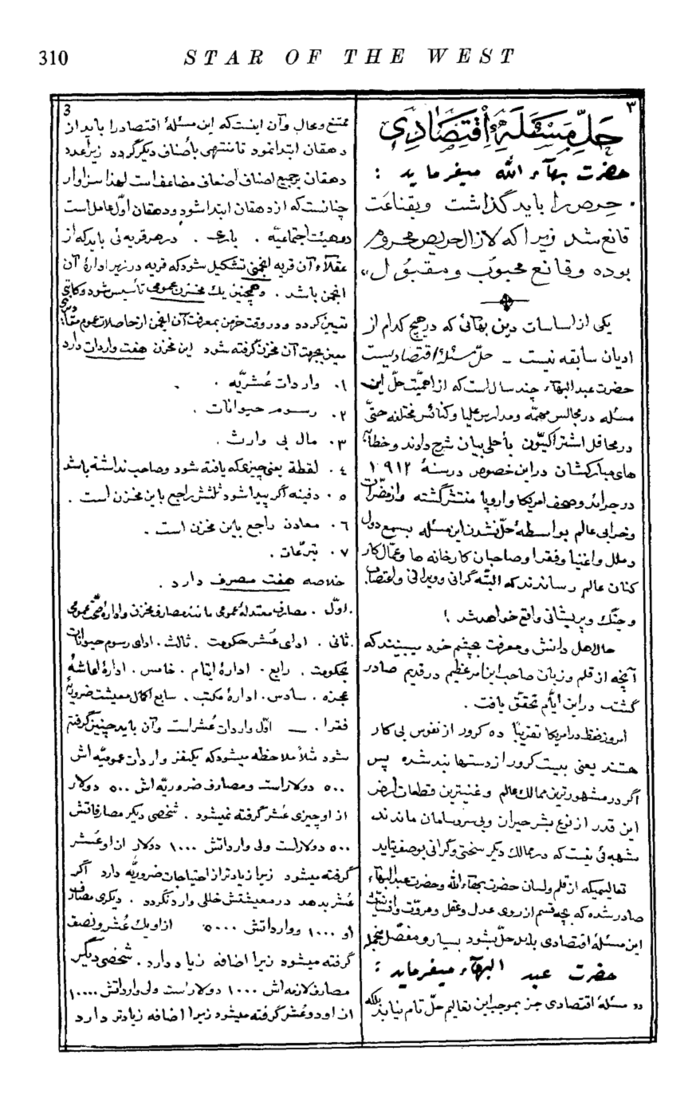 310 STAR OF THE WEST
۳
حلّ مسئلهٔ اقتصادی
حضرت بهاء الله میفرماید :
حرص را باید گذاشت و بقناعت
قانع شد زیرا که لازال حریص محروم
بوده و قانع محبوب و مقبول
یکی از اساسات دین بهائی که در هیچ کدام از
ادیان سابقه نیست – حلّ مسئلهٔ اقتصادیست
حضرت عبد البهاء چند سال است که از اهمیّت حلّ این
مسئله در مجالس مهمّه و مدارس علیا و کنائس مختلفه حتّی
در محافل اشتراکیّون بأحلی بیان شرح دادند و خطابه
های مبارکشان در این خصوص در سنهٔ ۱۹۱۲
در جرائد و صحف امریکا و اروپا منتشر گشته و از مضرّات
و خرابی عالم بواسطهٔ حلّ نشدن این مسئله بسمع دول
و ملل و اغنیا و فقرا و صاحبان کارخانه ها و عمّال کار
کنان عالم رساندند که البتّه گرانی و ویرانی و اعتصاب
و جنگ و پریشانی واقع خواهد شد !
حال اهل دانش و معرفت بچشم خود میبینند که
آنچه از قلم و زبان صاحب این امر عظیم در قدیم صادر
گشته در این ایّام تحقّق یافت .
امروز فقط در امریکا تقریباً ده کرور از نفوس بی کار
هستند یعنی بیست کرور از دستها بند شده پس
اگر در مشهورترین ممالک عالم و غنیترین قطعات ارض
این قدر از نوع بشر حیران و بی سر و سامان ماندند
شبهه ئی نیست که در ممالک دیگر سختی و گرانی بوصف نیاید
تعالیمیکه از قلم و لسان حضرت بهاء الله و حضرت عبد البهاء
صادر شده که بچه قسم از روی عدل و عقل و مروّت و انسانیّت
این مسئلهٔ اقتصادی باید حلّ بشود بسیار و مفصّل
حضرت عبد البهاء میفرماید :
مسئلهٔ اقتصادی جز بموجب این تعالیم حلّ تام نیابد بلکه
3
ممتنع و محال و آن اینست که این مسئلهٔ اقتصاد را باید از
دهقان ابتدا نمود تا منتهی بأصناف دیگر گردد زیرا عدد
دهقان بر جمیع اصناف أضعاف مضاعف است لهذا سزاوار
چنانست که از دهقان ابتدا شود و دهقان اوّل عامل است
در هیئت اجتماعیّه . باری . در هر قریه ئی باید که از
عقلاء آن قریه انجمنی تشکیل شود که قریه در زیر ادارهٔ آن
انجمن باشد . و همچنین یک مخزن عمومی تأسیس شود و کاتبی
تعیین گردد و در وقت خرمن بمعرفت آن انجمن از حاصلات عموم مقداری
معیّن بجهت آن مخزن گرفته شود این مخزن هفت واردات دارد
۱. واردات عُشریّه .
۲. رسوم حیوانات .
۳. مال بی وارث .
٤. لقطه یعنی چیزیکه یافته شود و صاحب نداشته باشد
٥. دفینه اگر پیدا شود ثلثش راجع باین مخزن است .
٦. معادن راجع باین مخزن است .
۷. تبرّعات .
خلاصه هفت مصرف دارد .
اوّل . مصارف معتدلهٔ عمومی مانند مصارف مخزن و ادارهٔ صحّت عمومی
ثانی . ادای عُشر حکومت . ثالث . ادای رسوم حیوانات
بحکومت . رابع . ادارهٔ ایتام . خامس . ادارهٔ اعاشهٔ
عجزه . سادس . ادارهٔ مکتب . سابع اکمال معیشت ضروریّهٔ
فقرا . – اوّل واردات عُشر است و آن باید چنین گرفته
شود مثلاً ملاحظه میشود که یکنفر واردات عمومیّه اش
٥٠٠ دولار است و مصارف ضروریّه اش ٥٠٠ دولار
از او چیزی عُشر گرفته نمیشود . شخصی دیگر مصارفاتش
٥٠٠ دولار است ولی وارداتش ۱٠٠٠ دولار از او عُشر
گرفته میشود زیرا زیادتر از احتیاجات ضروریّه دارد اگر
عُشر بدهد در معیشتش خللی وارد نگردد . دیگری مصارف
او ۱٠٠٠ و وارداتش ٥٠٠٠ از او یک عُشر و نصف
گرفته میشود زیرا اضافه زیاد دارد . شخصی دیگر
مصارف لازمه اش ۱٠٠٠ دولار است ولی وارداتش ۱٠٠٠٠
از او دو عُشر گرفته میشود زیرا اضافه زیادتر دارد